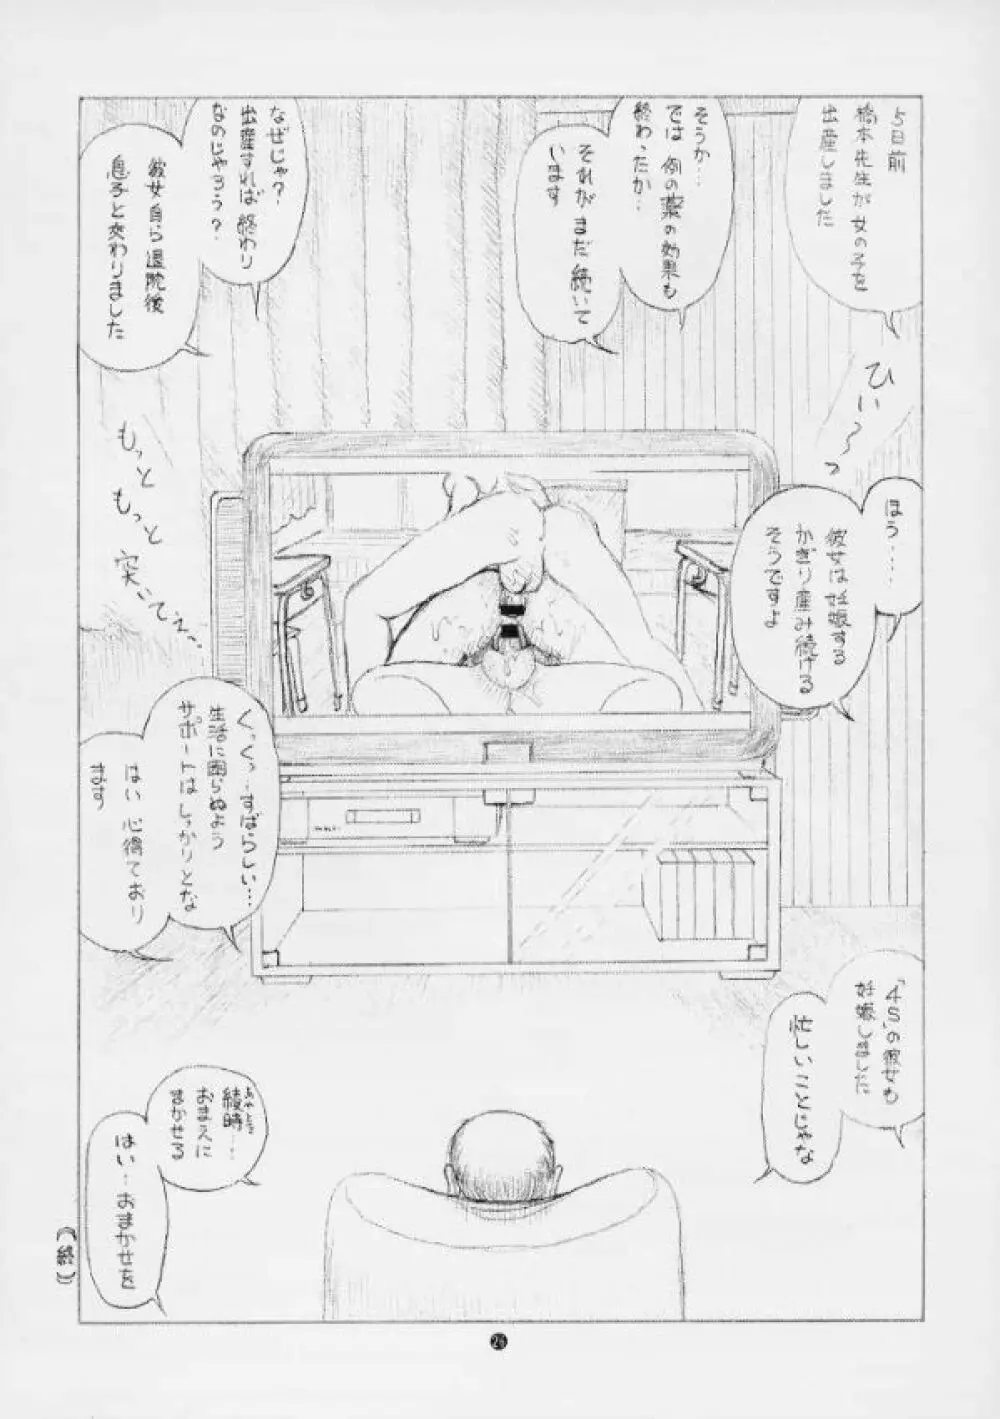 5日前
橋本先生が女の子を
出産しました
そうか…
では 例の薬の効果も
終わったか…
それがまだ続いて
います
なぜじゃ?
出産すれば終わり
なのじゃろう?
彼女自ら退院後
息子と交わりました
ひぃ〜っ
もっと
もっと
突いてぇ…
ほう……
彼女は妊娠する
かぎり産み続ける
そうですよ
くっくっ…すばらしい…
生活に困らぬよう
サポートはしっかりとな
はい 心得ており
ます
「45」の彼女も
妊娠しました
忙しいことじゃな
綾時…
おまえに
まかせる
はい…おまかせを
(終)
26